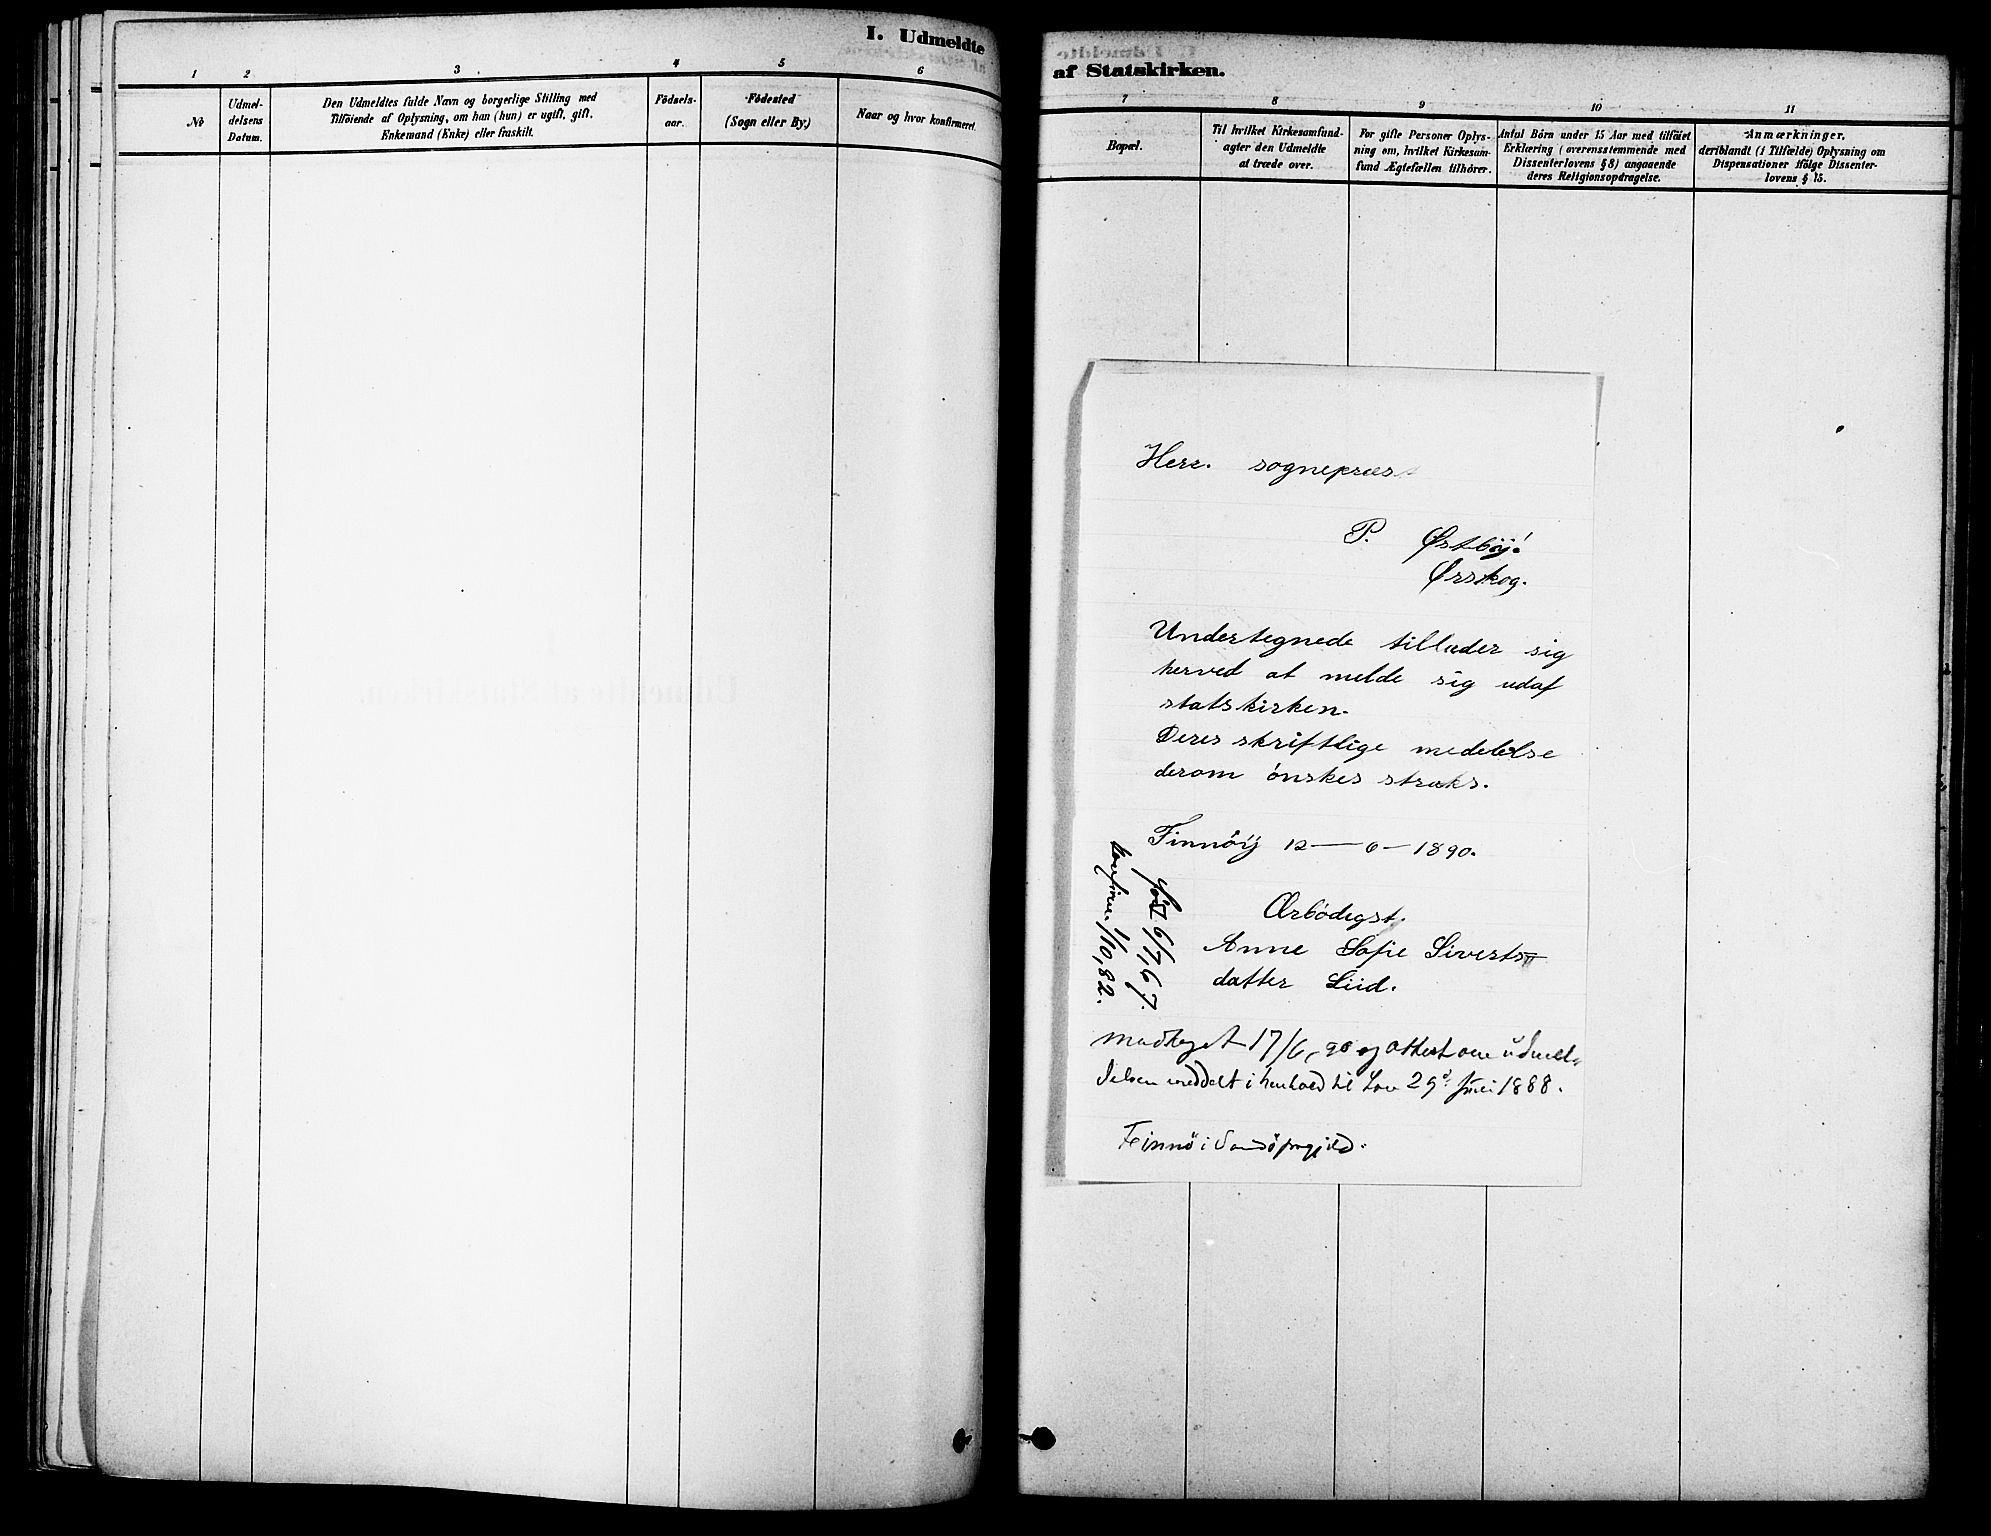 I. Udmeldte
1 2 3 4 5 6
No
Udmel-
delsens
Datum.
Den Udmeldtes fulde Navn og borgerlige Stilling med
Tilföiende af Oplysning, om han (hun) er ugift, gift,
Enkemand (Enke) eller fraskilt.
Födsels-
aar.
Födested
(Sogn eller By.)
Naar og hvor konfirmeret.
af Statskirken.
7 8 9 10 11
Bopæl.
Til hvilket Kirkesamfund
agter den Udmeldte
at træde over.
For gifte Personer Oplys-
ning om, hvilket Kirkesam-
fund Ægtefællen tilhörer.
Antal Börn under 15 Aar med tilföiet
Erklæring (overensstemmende med
Dissenterlovens § 8) angaaende
deres Religionsopdragelse.
Anmærkninger,
deriblandt (i Tilfælde) Oplysning om
Dispensationer ifölge Dissenter-
lovens § 15.
Herr. sogneprest
P. Østböj!
Ørskog.
Undertegnede tillader sig
herved at melde sig udaf
statskirken.
Deres skriftlige medelelse
derom önskes straks.
Finnöy 12 — 6 — 1890.
Ærbödigst.
Anne Sofie Siverts-
datter Liid.
född 6/7, 67.
konfirm. 1/10, 82.
Modtaget 17/6, 90 og attest om udmel-
delsen meddelt i henhold til Lov 29d Juni 1888.
Finnö i Sandö prgjeld.